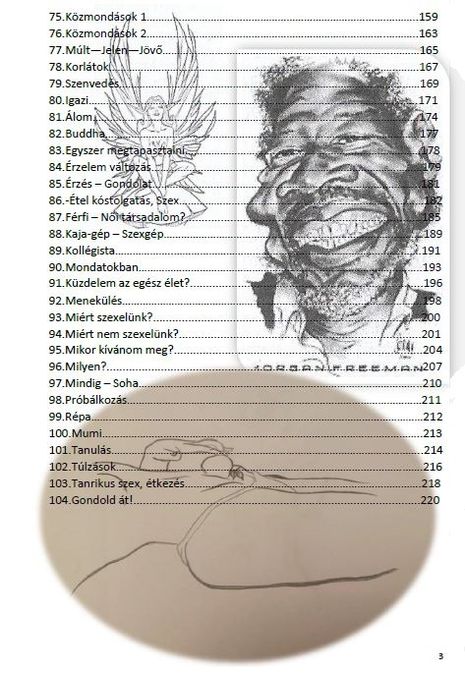 75.Közmondások 1........159
76.Közmondások 2........163
77.Múlt—Jelen—Jövő........165
78.Korlátok........167
79.Szenvedés........169
80.Igazi........171
81.Álom........174
82.Buddha........177
83.Egyszer megtapasztalni........178
84.Érzelem változás........179
85.Érzés – Gondolat........181
86.-Étel kóstolgatás, Szex........182
87.Férfi – Női társadalom?........185
88.Kaja-gép – Szexgép........189
89.Kollégista........191
90.Mondatokban........193
91.Küzdelem az egész élet?........196
92.Menekülés........198
93.Miért szexelünk?........200
94.Miért nem szexelünk?........201
95.Mikor kívánom meg?........204
MORGAN FREEMAN
96.Milyen?........207
97.Mindig – Soha........210
98.Próbálkozás........211
99.Répa........212
100.Mumi........213
101.Tanulás........214
102.Túlzások........216
103.Tanrikus szex, étkezés........218
104.Gondold át!........220
3